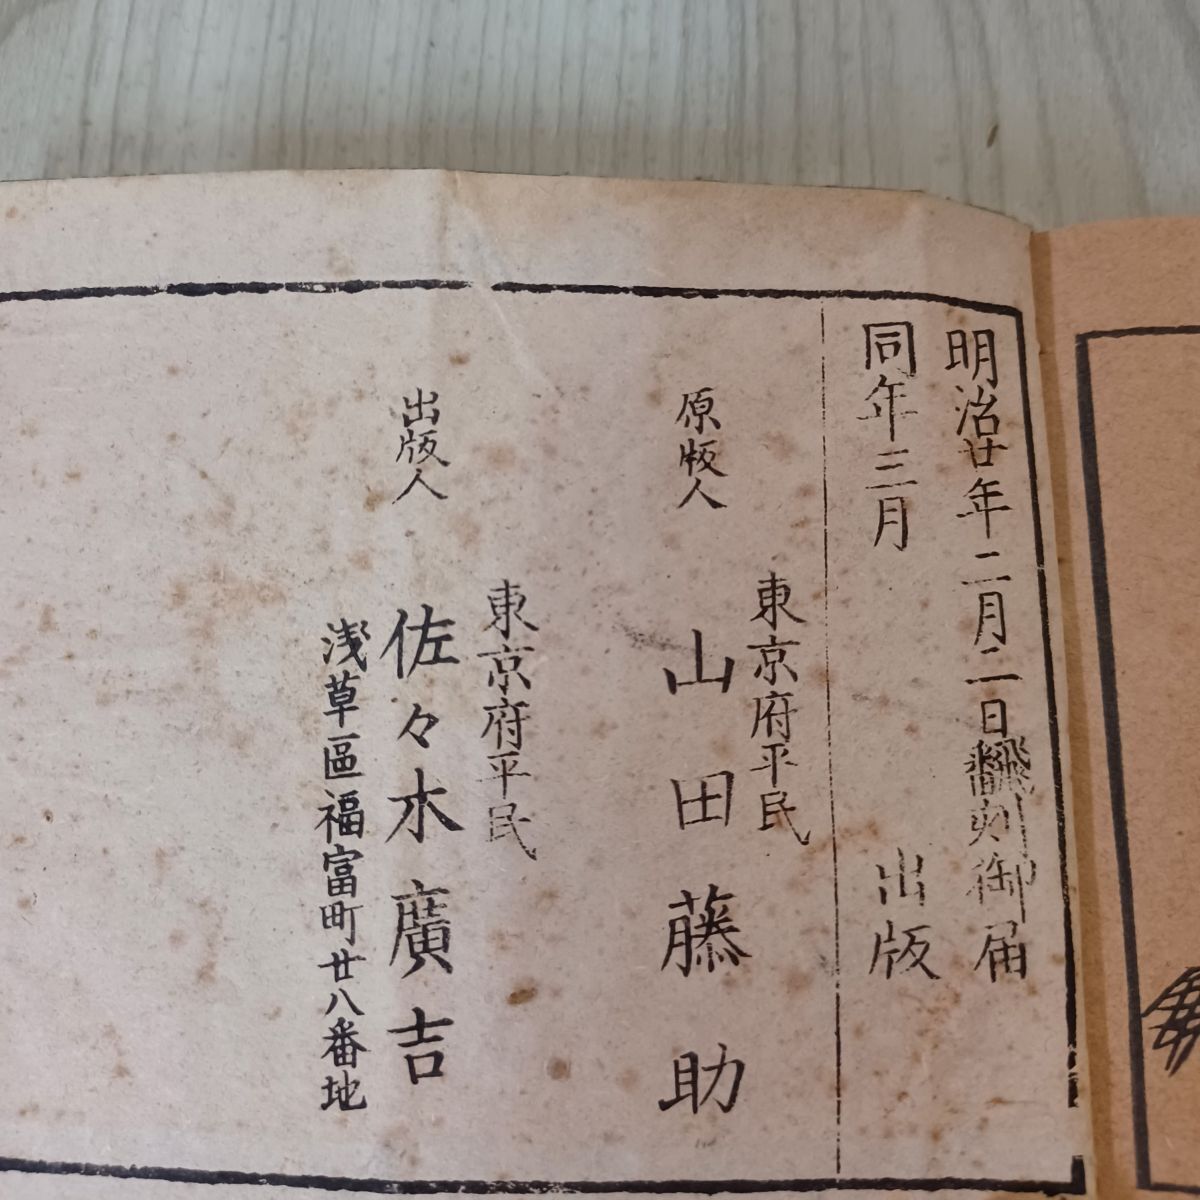 明治廿年二月二日翻刻御届
同年三月 出版
東京府平民
原版人 山田藤助
東京府平民
出版人 佐々木廣吉
浅草區福富町廿八番地